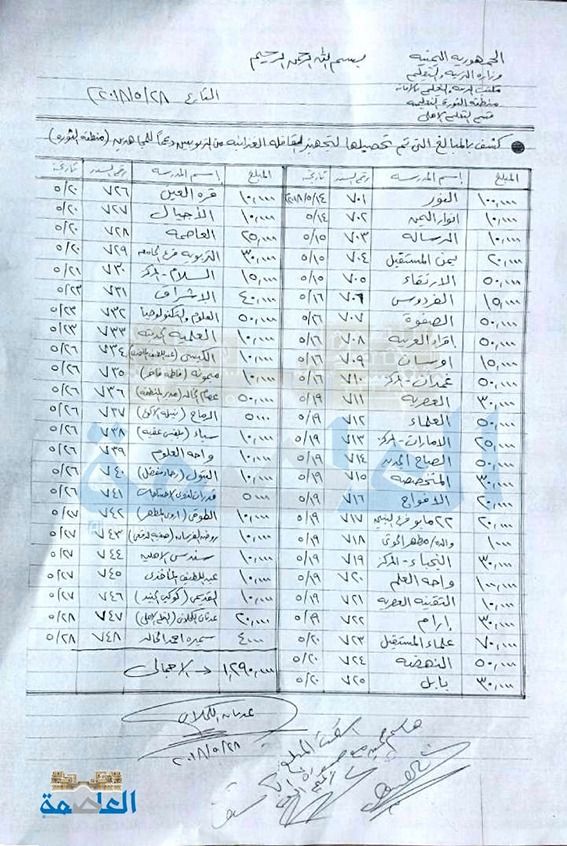 بسم الله الرحمن الرحيم
الجمهورية اليمنية
وزارة التربية والتعليم
مكتب التربية والتعليم بالأمانة
منطقة الثورة التعليمية
قسم التعليم الأهلي
التاريخ ٢٠١٨/٥/٢٨
كشف بالمبالغ التي تم تحصيلها لتجهيز القافلة الغذائية من التربويين دعماً للمجاهدين (منطقة الثورة)
المبلغ إسم المدرسة رقم السند تاريخ
١٠٠,٠٠٠ النور ٧٠١ ٢٠١٨/٥/١٤
١٠,٠٠٠ انوار اليمن ٧٠٢ ٥/١٤
١٠,٠٠٠ الرسالة ٧٠٣ ٥/١٥
٢٠,٠٠٠ يمن المستقبل ٧٠٤ ٥/١٥
٥٠,٠٠٠ الارتقاء ٧٠٥ ٥/١٥
١٥,٠٠٠ الفردوس ٧٠٦ ٥/١٦
٥٠,٠٠٠ الصفوة ٧٠٧ ٥/١٦
٥٠,٠٠٠ اقرأ العربية ٧٠٨ ٥/١٦
١٥,٠٠٠ اوسان ٧٠٩ ٥/١٦
٥٠,٠٠٠ غمدان - المركز ٧١٠ ٥/١٦
٣٠,٠٠٠ العصرية ٧١١ ٥/١٩
٥٠,٠٠٠ العلماء ٧١٢ ٥/١٩
٢٥,٠٠٠ الامارات - المركز ٧١٣ ٥/١٩
٥٠,٠٠٠ الصباح ٧١٤ ٥/١٩
٣٠,٠٠٠ المتخصصة ٧١٥ ٥/١٩
٢٠,٠٠٠ الافواج ٧١٦ ٥/١٩
٢٠,٠٠٠ ٢٢ مايو فرع ٧١٧ ٥/١٩
١٠٠٠ ٧١٨ ٥/١٩
٣٠,٠٠٠ النجباء - المركز ٧١٩ ٥/١٩
١٠٠,٠٠٠ واحة العلم ٧٢٠ ٥/١٩
١٠,٠٠٠ التقنية العصرية ٧٢١ ٥/١٩
٣٠,٠٠٠ إرام ٧٢٢ ٥/١٩
٧٠,٠٠٠ علماء المستقبل ٧٢٣ ٥/٢٠
٥٠,٠٠٠ النهضة ٧٢٤ ٥/٢٠
٣٠,٠٠٠ بابل ٧٢٥ ٥/٢٠
المبلغ إسم المدرسة رقم السند تاريخ
١٠,٠٠٠ قرة العين ٧٢٦ ٥/٢٠
١٠,٠٠٠ الأجيال ٧٢٧ ٥/٢٠
٢٥,٠٠٠ العاصمة ٧٢٨ ٥/٢٠
٣٠,٠٠٠ التربوية فرع الجامعة ٧٢٩ ٥/٢٠
١٥,٠٠٠ السلام - المركز ٧٣٠ ٥/٢١
٤٠,٠٠٠ الاشراق ٧٣١ ٥/٢٣
٥٠,٠٠٠ العلوم والتكنولوجيا ٧٣٢ ٥/٢٣
١٠,٠٠٠ العلمية الحديثة ٧٣٣ ٥/٢٣
١٠,٠٠٠ الكبسي ٧٣٤ ٥/٢٦
١٠,٠٠٠ ميمونة ٧٣٥ ٥/٢٦
٥٠,٠٠٠ ٧٣٦ ٥/٢٦
٥٠٠٠ ٧٣٧ ٥/٢٦
١٠,٠٠٠ سباء ٧٣٨ ٥/٢٦
١٠,٠٠٠ واحة العلوم ٧٣٩ ٥/٢٦
١٠,٠٠٠ البتول ٧٤٠ ٥/٢٦
٥٠٠٠ ٧٤١ ٥/٢٦
١٠,٠٠٠ الطوقي ٧٤٢ ٥/٢٧
١٠,٠٠٠ ٧٤٣ ٥/٢٧
١٠,٠٠٠ سندس الاهلية ٧٤٤ ٥/٢٧
١٠,٠٠٠ عبداللطيف ٧٤٥ ٥/٢٧
١٠,٠٠٠ ٧٤٦ ٥/٢٧
٢٠,٠٠٠ عدنان الكحلاني ٧٤٧ ٥/٢٨
٤٠٠٠ سميرة احمد ٧٤٨ ٥/٢٨
١,٢٩٠,٠٠٠ الاجمالي
٢٠١٨/٥/٢٨
العاصمة
العاصمة